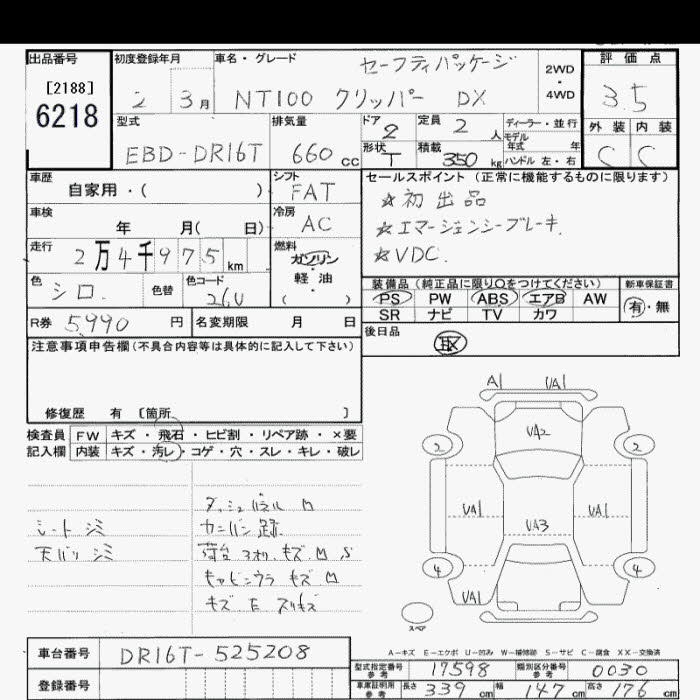 出品番号
[2188]
6218
初度登録年月
2 3月
車名・グレード
セーフティパッケージ
NT100 クリッパー DX
2WD
・
4WD
評価点
3.5
型式
EBD-DR16T
排気量
660 cc
ドア
2
定員 2 人
形状
T
積載
350 kg
ディーラー・並行
モデル
年式 年
ハンドル 左・右
外装 内装
C C
車歴
自家用・( )
シフト
FAT
車検
年 月( 日)
冷房
AC
走行
2万4千975km
燃料
ガソリン
軽・油
( ・ )
色
シロ
色替
色コード
26U
R券 5,990 円
名変期限 月 日
セールスポイント(正常に機能するものに限ります)
☆初出品
☆エマージェンシーブレーキ.
☆VDC.
装備品(純正品に限り○をつけてください)
PS PW ABS エアB AW
SR ナビ TV カワ
新車保証書
有・無
後日品
取
注意事項申告欄(不具合内容等は具体的に記入して下さい)
修復歴 有 〔箇所 〕
検査員
記入欄
FW キズ・飛石・ヒビ割・リペア跡・×要
内装 キズ・汚レ・コゲ・穴・スレ・キレ・破レ
シート シミ
天バリ シミ
ダッシュパネル M
カンバン跡
荷台 3方 キズ M S
キャビンウラ キズ M
キズ E スリキズ
A1 UA1
UA2
2 2
UA1 UA3 UA1
4 4
UA1
スペア
A-キズ E-エクボ U-凹み W-補修跡 S-サビ C-腐食 XX-交換済
車台番号 DR16T-525208
登録番号
型式指定番号
参考
17598
類別区分番号
参考
0030
車庫証明用
参考
長さ 339 cm 幅 147 cm 高さ 176 cm